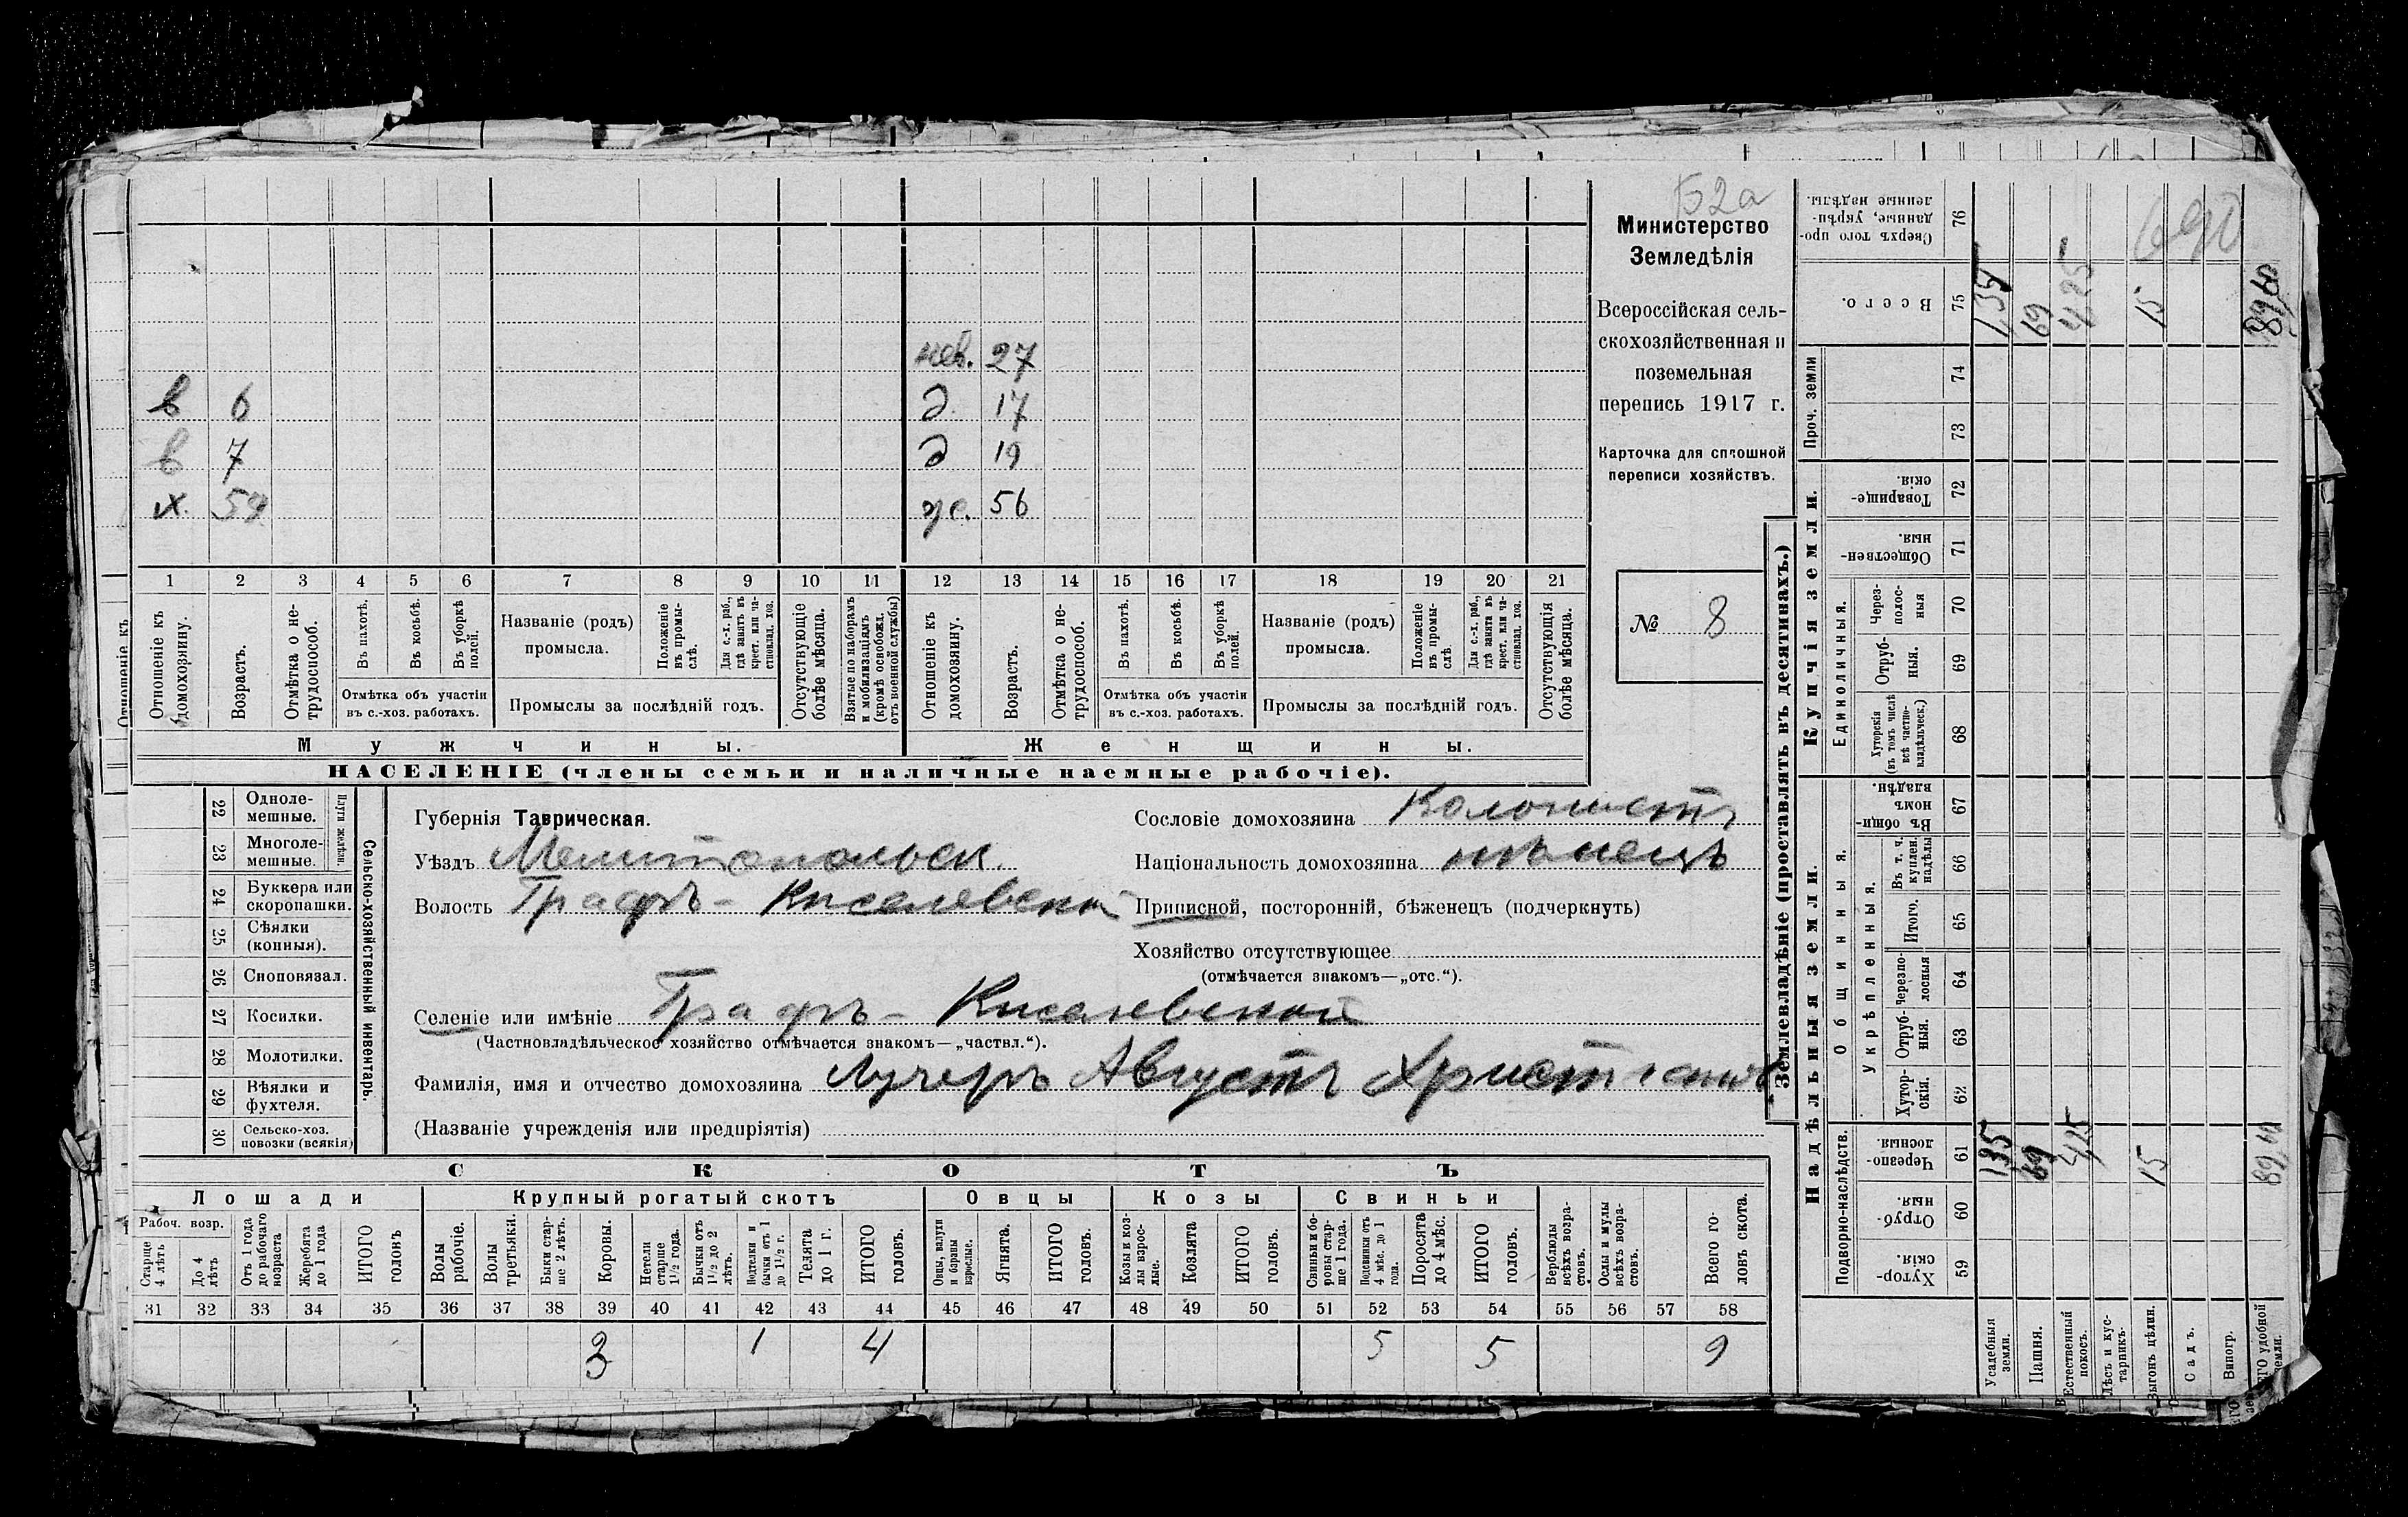 Б2а
Министерство
Земледѣлія
Всероссійская сель-
скохозяйственная и
поземельная
перепись 1917 г.
Карточка для сплошной
переписи хозяйствъ.
№ 8
нев. 27
в 6 д. 17
в 7 д 19
х. 54 ж. 56
1 2 3 4 5 6 7 8 9 10 11 12 13 14 15 16 17 18 19 20 21
Отношеніе къ
Отношеніе къ домохозяину.
Возрастъ.
Отмѣтка о не-трудоспособ.
Въ пахотѣ.
Въ косьбѣ.
Въ уборкѣ полей.
Отмѣтка объ участіи
въ с.-хоз. работахъ.
Названіе (родъ)
промысла.
Положеніе въ промы-слѣ.
Для с.-х. раб., гдѣ занятъ въ крест. или ча-стновлад. хоз.
Промыслы за послѣдній годъ.
Отсутствующіе болѣе мѣсяца.
Взятые по наборамъ и мобилизаціямъ (кромѣ освобожд. отъ военной службы)
Отношеніе къ домохозяину.
Возрастъ.
Отмѣтка о не-трудоспособ.
Въ пахотѣ.
Въ косьбѣ.
Въ уборкѣ полей.
Отмѣтка объ участіи
въ с.-хоз. работахъ.
Названіе (родъ)
промысла.
Положеніе въ промы-слѣ.
Для с.-х. раб., гдѣ занята въ крест. или ча-стновлад. хоз.
Промыслы за послѣдній годъ.
Отсутствующія болѣе мѣсяца.
Мужчины. Женщины.
НАСЕЛЕНІЕ (члены семьи и наличные наемные рабочіе).
22 Однолемешные.
23 Многолемешные.
24 Буккера или скоропашки.
25 Сѣялки (конныя).
26 Сноповязал.
27 Косилки.
28 Молотилки.
29 Вѣялки и фухтеля.
30 Сельско-хоз. повозки (всякія)
Сельско-хозяйственный инвентарь.
Губернія Таврическая.
Уѣздъ Мелитопольск.
Волость Графъ-Киселевская
Сословіе домохозяина Колонистъ
Національность домохозяина нѣмецъ
Приписной, посторонній, бѣженецъ (подчеркнуть)
Хозяйство отсутствующее
(отмѣчается знакомъ—„отс.“).
Селеніе или имѣніе Графъ-Киселевской
(Частновладѣльческое хозяйство отмѣчается знакомъ—„частвл.“).
Фамилія, имя и отчество домохозяина Лучеръ Августъ Христіанов
(Названіе учрежденія или предпріятія)
СКОТЪ
Лошади Крупный рогатый скотъ Овцы Козы Свиньи
Рабоч. возр.
Старше 4 лѣтъ
До 4 лѣтъ
Отъ 1 года до рабочаго возраста
Жеребята до 1 года
ИТОГО головъ
Волы рабочіе.
Волы третьяки.
Быки стар-ше 2 лѣтъ.
Коровы.
Нетели старше 1½ года.
Бычки отъ 1½ до 2 лѣтъ.
Подтелки и бычки отъ 1 до 1½ г.
Телята до 1 г.
ИТОГО головъ.
Овцы, валухи и бараны взрослые.
Ягнята.
ИТОГО головъ.
Козы и коз-лы взрос-лые.
Козлята
ИТОГО головъ.
Свиньи и бо-ровы стар-ше 1 года.
Подсвинки отъ 4 мѣс. до 1 года.
Поросята до 4 мѣс.
ИТОГО головъ.
Верблюды всѣхъ возра-стовъ.
Ослы и мулы всѣхъ возра-стовъ.
Всего го-ловъ скота.
31 32 33 34 35 36 37 38 39 40 41 42 43 44 45 46 47 48 49 50 51 52 53 54 55 56 57 58
3 1 4 5 5 9
Землевладѣніе (проставлять въ десятинахъ.)
Надѣльныя земли. Купчія земли. Проч. земли
Подворно-наслѣдств. Общинныя. Единоличныя.
Укрѣпленныя.
Хутор-скія. 59
Отруб-ныя. 60
Черезпо-лосныя. 61
Хутор-скія. 62
Отруб-ныя. 63
Черезпо-лосныя 64
Итого. 65
Въ т. ч. куплен. надѣлы 66
Въ общи-номъ владѣн. 67
Хуторскія (въ томъ числѣ всѣ частно-владѣльческ.) 68
Отруб-ныя. 69
Через-полос-ныя 70
Обществен-ныя. 71
Товарище-скія. 72
73
74
Всего. 75
Сверхъ того про-данные, укрѣп-ленные надѣлы. 76
Усадебныя земли. 135 135
Пашня. 69 69
Естественный покосъ. 425 425
Лѣсъ и кус-тарникъ.
Выгонъ цѣлин. 15 15
Садъ.
Виногр.
690